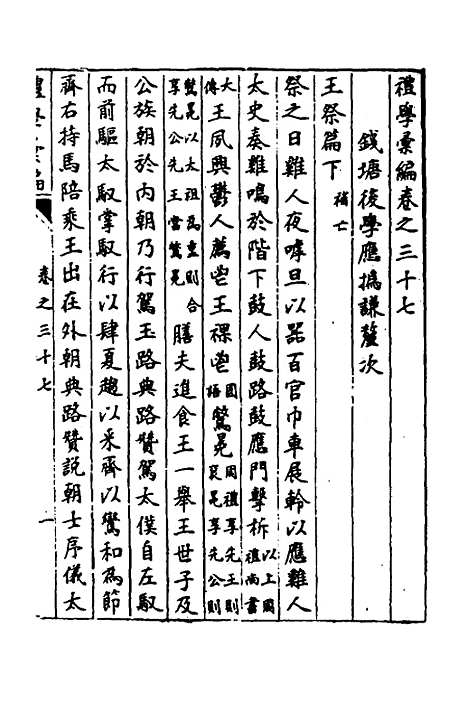 禮學彙編卷之三十七
錢塘後學應撝謙嗣寅次
王祭篇下 補亡
祭之日雞人夜嘑旦以嘂百官巾車展軨以應雞人
太史奏雞鳴於階下鼓人鼓路鼓應門擊柝 以上周禮尚書
大傳 王夙興鬱人薦鬯王祼鬯 國語 鷩冕 周禮享先王則袞冕享先公則
鷩冕以太祖為重則合享先公先王當鷩冕 膳夫進食王一舉王世子及
公族朝於內朝乃行駕玉路典路贊駕太僕自左馭
而前驅太馭掌馭行以肆夏趨以采齊以鸞和為節
齊右持馬陪乘王出在外朝典路贊說朝士序儀太
卷之三十七
一